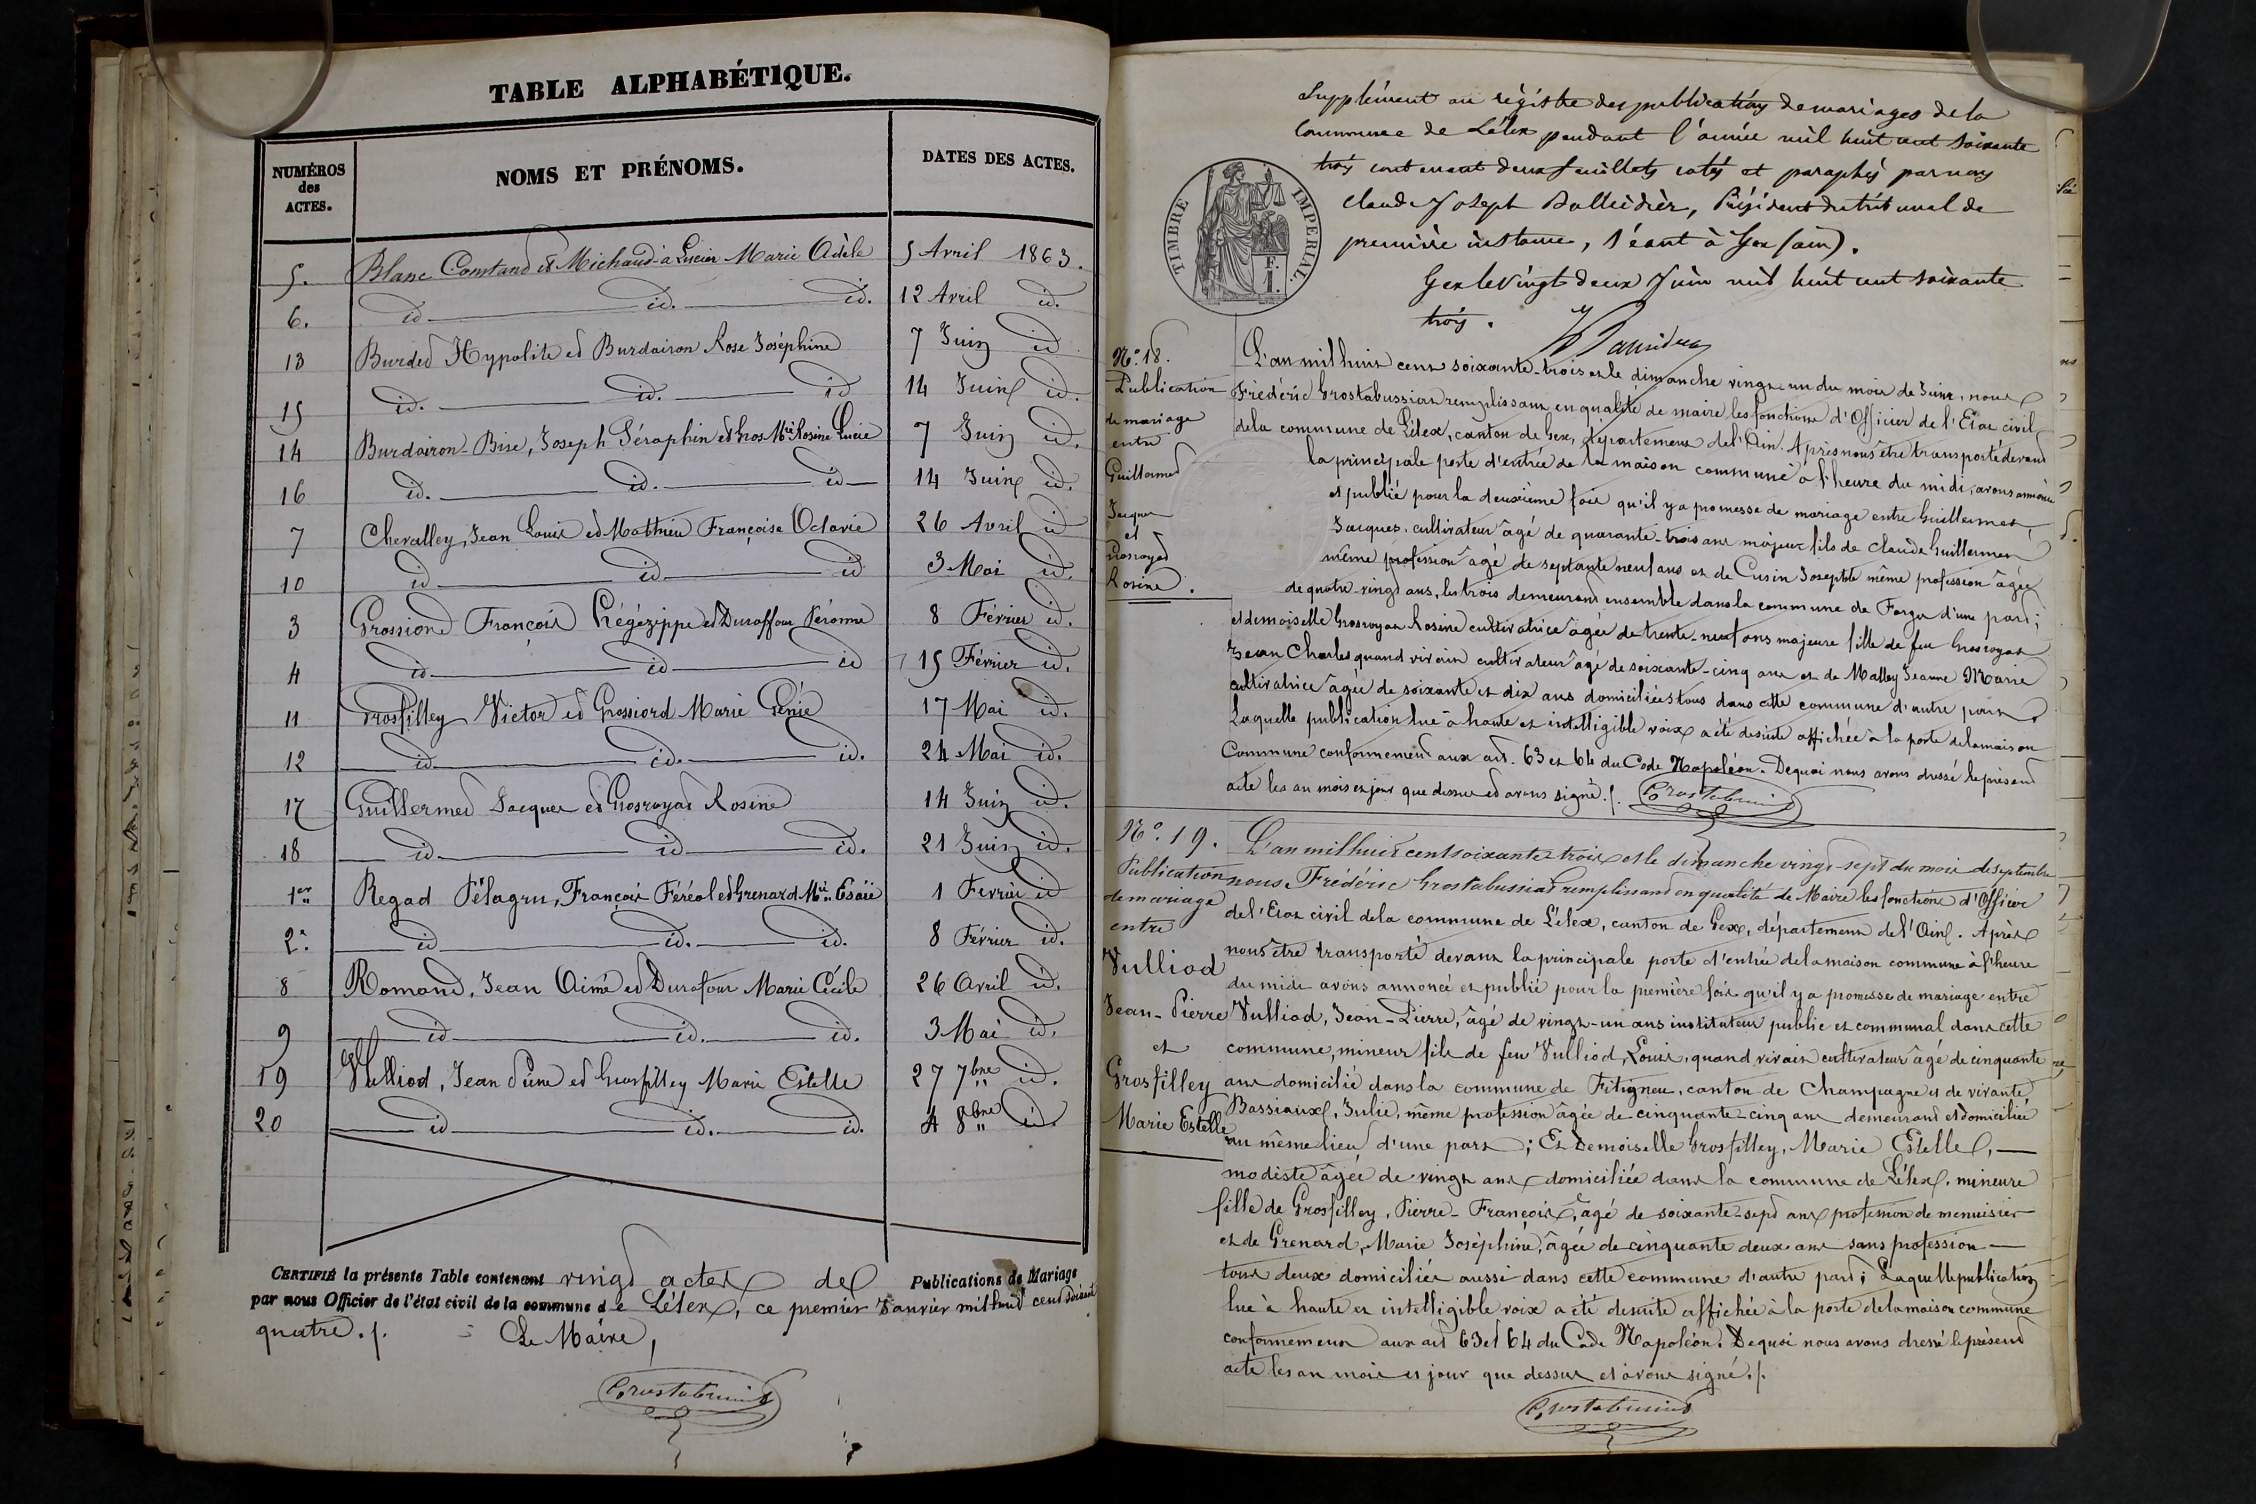 TABLE ALPHABÉTIQUE.
NUMÉROS des ACTES. NOMS ET PRÉNOMS. DATES DES ACTES.
5. Blanc Constand et Michaud à Lucien Marie Adèle 5 Avril 1863.
6. id id. id. 12 Avril id.
13 Burdet Hypolite et Burdairon Rose Joséphine 7 Juin id
15 id. id. id 14 Juin id.
14 Burdairon-Bise, Joseph Séraphin et Gros Mie Rosine Lucie 7 Juin id.
16 id. id. id 14 Juin id.
7 Chevalley, Jean Louis et Mathieu Françoise Octavie 26 Avril id
10 id id id 3 Mai id.
3 Grossiord François Hégézippe et Duraffour Péronne 8 Février id.
4 id id id 15 Février id.
11 Grosfilley Victor et Grossiord Marie Génie 17 Mai id.
12 id id. id. 24 Mai id.
17 Guillermet Jacques et Grosroyat Rosine 14 Juin id.
18 id id id. 21 Juin id.
1er Regad Pélagru, François Féréol et Grenard Mie Esaïe 1 Février id
2e. id id. id. 8 Février id.
8 Romand, Jean Aimé et Durafour Marie Cécile 26 Avril id.
9 id id. id. 3 Mai id.
19 Vulliod, Jean Pierre et Grosfilley Marie Estelle 27 7bre id.
20 id id. id. 4 8bre id.
CERTIFIÉ la présente Table contenant vingt actes de Publications de Mariage
par nous Officier de l'état civil de la commune de Lélex, ce premier Janvier mil huit cent soixante
quatre./.
Le Maire,
Grostabussiat
Supplément au régistre des publications de mariages de la
Commune de Lélex pendant l'année mil huit cent soixante
trois contenant deux feuillets cotés et paraphés par nous
Claude Joseph , Président du tribunal de
première instance, séant à Gex (ain).
Gex le vingt deux Juin mil huit cent soixante
trois.
TIMBRE IMPERIAL.
F. 1.
No. 18.
Publication
de mariage
entre
Guillermet
Jacques
et
Grosroyat
Rosine.
L'an mil huit cent soixante-trois et le dimanche vingt-un du mois de Juin, nous
Frédéric Grostabussiat remplissant en qualité de maire les fonctions d'Officier de l'Etat civil
de la commune de Lélex, canton de Gex, département de l'Ain. Après nous être transporté devant
la principale porte d'entrée de la maison commune à l'heure du midi, avons annoncé
et publié pour la deuxième fois qu'il y a promesse de mariage entre Guillermet,
Jacques, cultivateur âgé de quarante-trois ans majeur fils de Claude Guillermet
même profession âgé de septante neuf ans et de Cusin Josephte même profession âgée
de quatre-vingt ans, les trois demeurant ensemble dans la commune de Forges d'une part;
et demoiselle Grosroyat Rosine cultivatrice âgée de trente-neuf ans majeure fille de feu Grosroyat
Jean Charles quand vivait cultivateur âgé de soixante-cinq ans et de Malley Jeanne Marie
cultivatrice âgée de soixante et dix ans domiciliés tous dans cette commune d'autre part.
Laquelle publication lue à haute et intelligible voix a été desuite affichée à la porte de la maison
Commune conformement aux art. 63 et 64 du Code Napoléon. Dequoi nous avons dressé le présent
acte les an mois et jour que dessus et avons signé./. Grostabussiat
No. 19.
Publication
de mariage
entre
Vulliod
Jean-Pierre
et
Grosfilley
Marie Estelle
L'an mil huit cent soixante-trois et le dimanche vingt-sept du mois de Septembre
nous Frédéric Grostabussiat remplissant en qualité de Maire les fonctions d'Officier
de l'Etat civil de la commune de Lélex, canton de Gex, département de l'Ain. Après
nous être transporté devant la principale porte d'entrée de la maison commune à l'heure
du midi avons annoncé et publié pour la première fois qu'il y a promesse de mariage entre
Vulliod, Jean-Pierre, âgé de vingt-un ans instituteur public et communal dans cette
commune, mineur fils de feu Vulliod, Louis, quand vivait cultivateur âgé de cinquante
ans domicilié dans la commune de Fitigneu, canton de Champagne et de vivante
Bassiaux, Julie, même profession âgée de cinquante-cinq ans demeurant et domiciliée
au même lieu d'une part; Et Demoiselle Grosfilley, Marie Estelle,
modiste âgée de vingt ans domiciliée dans la commune de Lélex, mineure
fille de Grosfilley, Pierre-François, âgé de soixante-sept ans profession de menuisier
et de Grenard, Marie Joséphine, âgée de cinquante deux ans sans profession
tous deux domiciliés aussi dans cette commune d'autre part; Laquelle publication
lue à haute et intelligible voix a été desuite affichée à la porte de la maison commune
conformement aux art 63 et 64 du Code Napoléon. Dequoi nous avons dressé le présent
acte les an mois et jour que dessus et avons signé./.
Grostabussiat